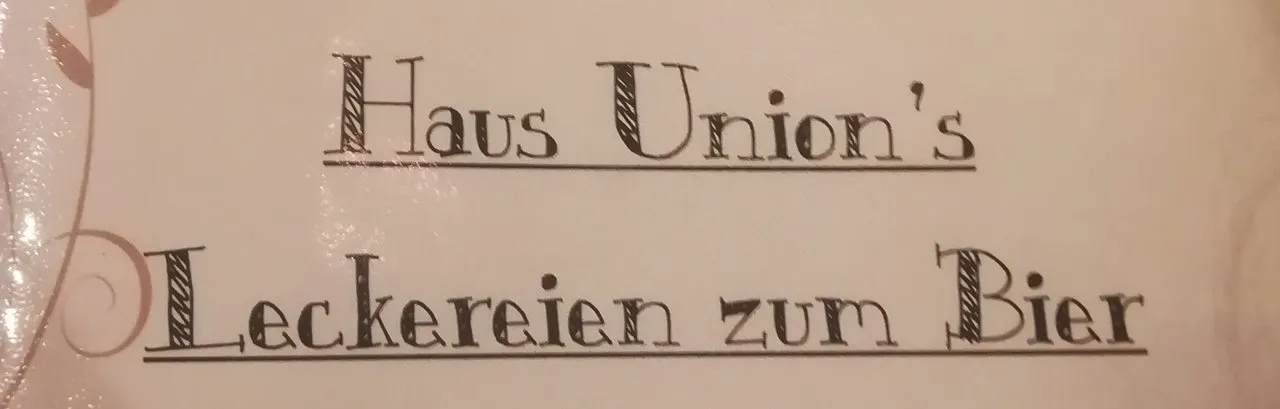 Haus Union's
Leckereien zum Bier